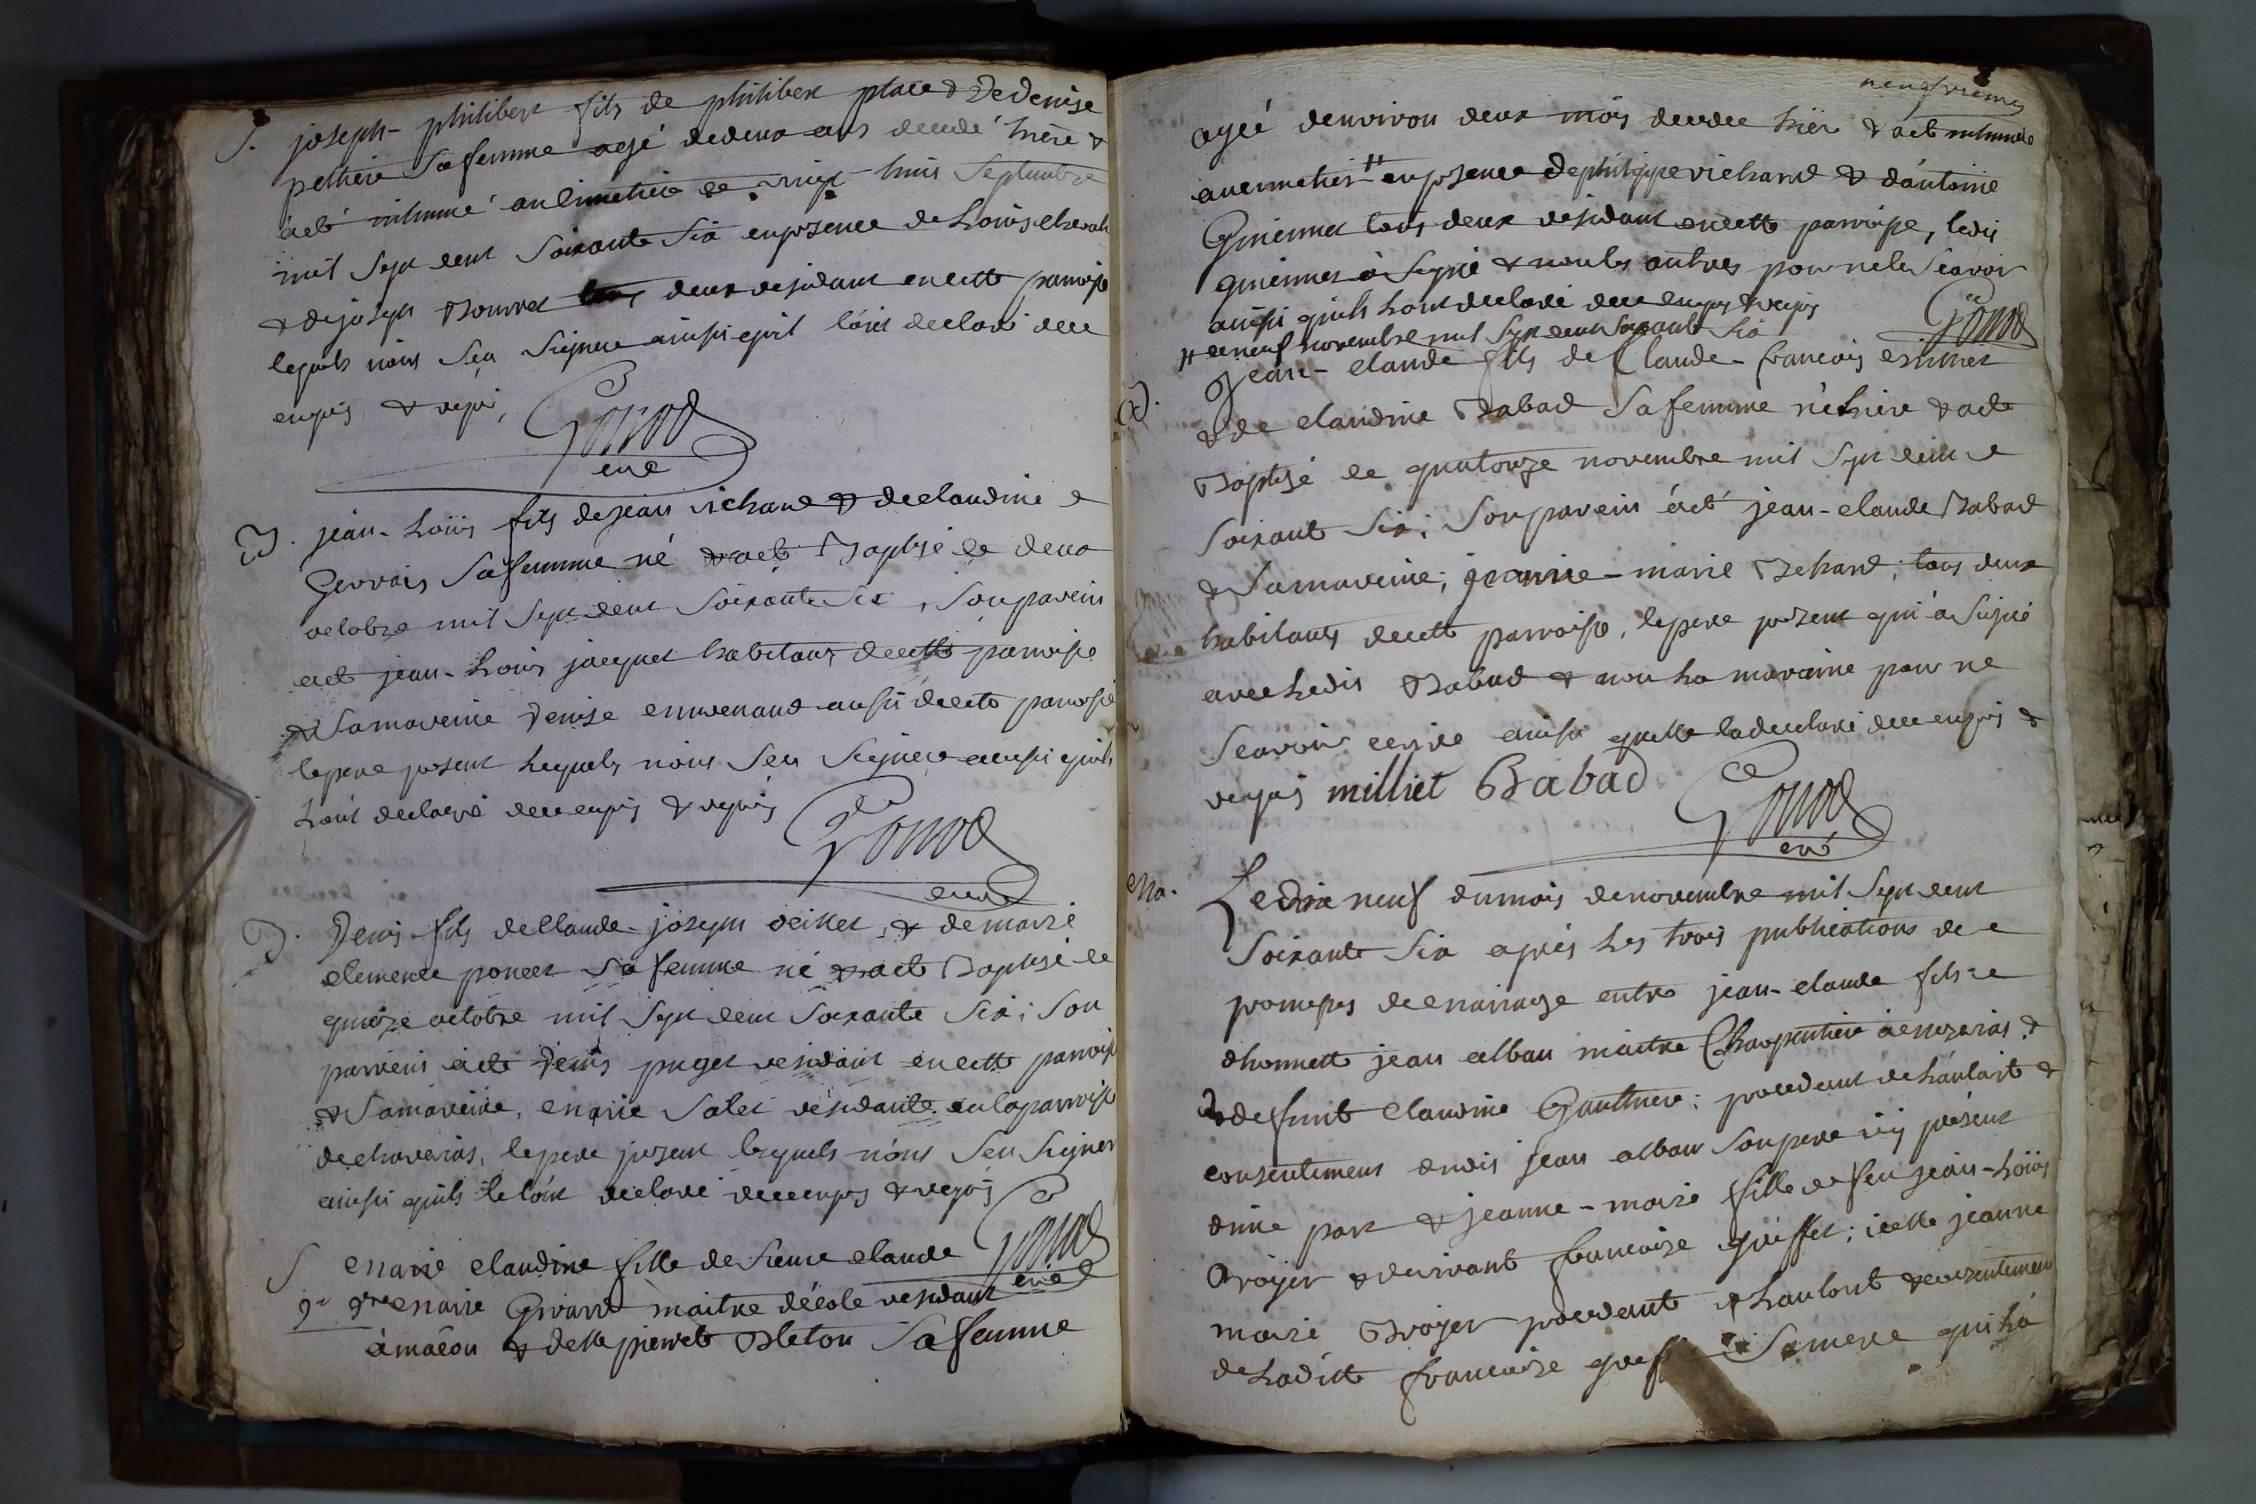 S. joseph-philibert fils de philibert place & de denise
pethere sa femme agé de deux ans decedé hiere &
áeté inhumé au cimetiere le vingt-huit septembre
mil sept cent soixante six en presence de Louis chevalı
& de joseph Bouvret tous deux residant en cette paroisse
lequels n'ont seu signere ainsi qu'il l'ont declaré de ce
enquis & requis, Gonod
curé
B. jean-Loüis fils de jean richard & de claudine
Gervais sa femme né & aeté Baptisé le deux
octobre mil sept cent soixante six, son parein
aeté jean-Louis jacquet habitans de cette paroisse
& sa mareine Denise ennuenand aussi de cette paroisse
le pere present lequels n'ont seu signere ainsi qu'ils
L'ont declaré de ce enquis & requis Gonod
curé
B. Denis fils de Claude-joseph oeillet, & de marie
clemence poncet sa femme né & aeté Baptisé le
quinze octobre mil sept cent soixante six; son
parrein aeté Denis puget residant en cette paroisse
& sa mareine, marie Salet residante en la paroisse
de chaveiras, le pere present lequels n'ont seu signer
ainsi qu'ils le l'ont declaré de ce enquis & requis Gonod
curé
S marie claudine fille de sieur claude
marie Girard maitre décole residant
à mâcon & de lle pierrete Bleton sa femme
neufvieme
agéé d'environ deux mois decedee hier & aeté inhumée
au cimetier # en presence de philippe richard & d'antoine
Guiennet tous deux residant en cette paroisse, ledit
guiennet à signé & non les autres pour ne le scavoir
ainsi qu'ils L'ont declaré de ce enquis & requis
# le neuf novembre mil sept cent soixante six Gonod
B. Jean-claude fils de Claude-francois milliet
& de claudine Babad sa femme né hiere & aeté
Baptisé le quatorze novembre mil sept cent
soixant six; son parein áeté jean-claude Babad
& sa mareine; jeanne-marie Behard; tous deux
habitants de cette parroisse, le pere present qui à signé
avec Ledit Babad & non La maraine pour ne
scavoir ecrire ainsi quelle la declaré de ce enquis &
requis milliet Babad Gonod
curé
Ma. Le dix neuf du mois de novembre mil sept cent
soixante six après Les trois publications de
promesses de mariage entre jean-claude fils
d'honnette jean alban maitre Charpentier à mezerias &
de defunte Claudine Gauthiere; procedant de L'autorité &
consentement dudit jean alban son pere icy présent
d'une part & jeanne-marie fille de feu jean-Loüis
Broyer & de vivante francoise griffet; icelle jeanne
marie Broyer procedante de L'autorité & consentement
de Laditte francoise sa mere qui La